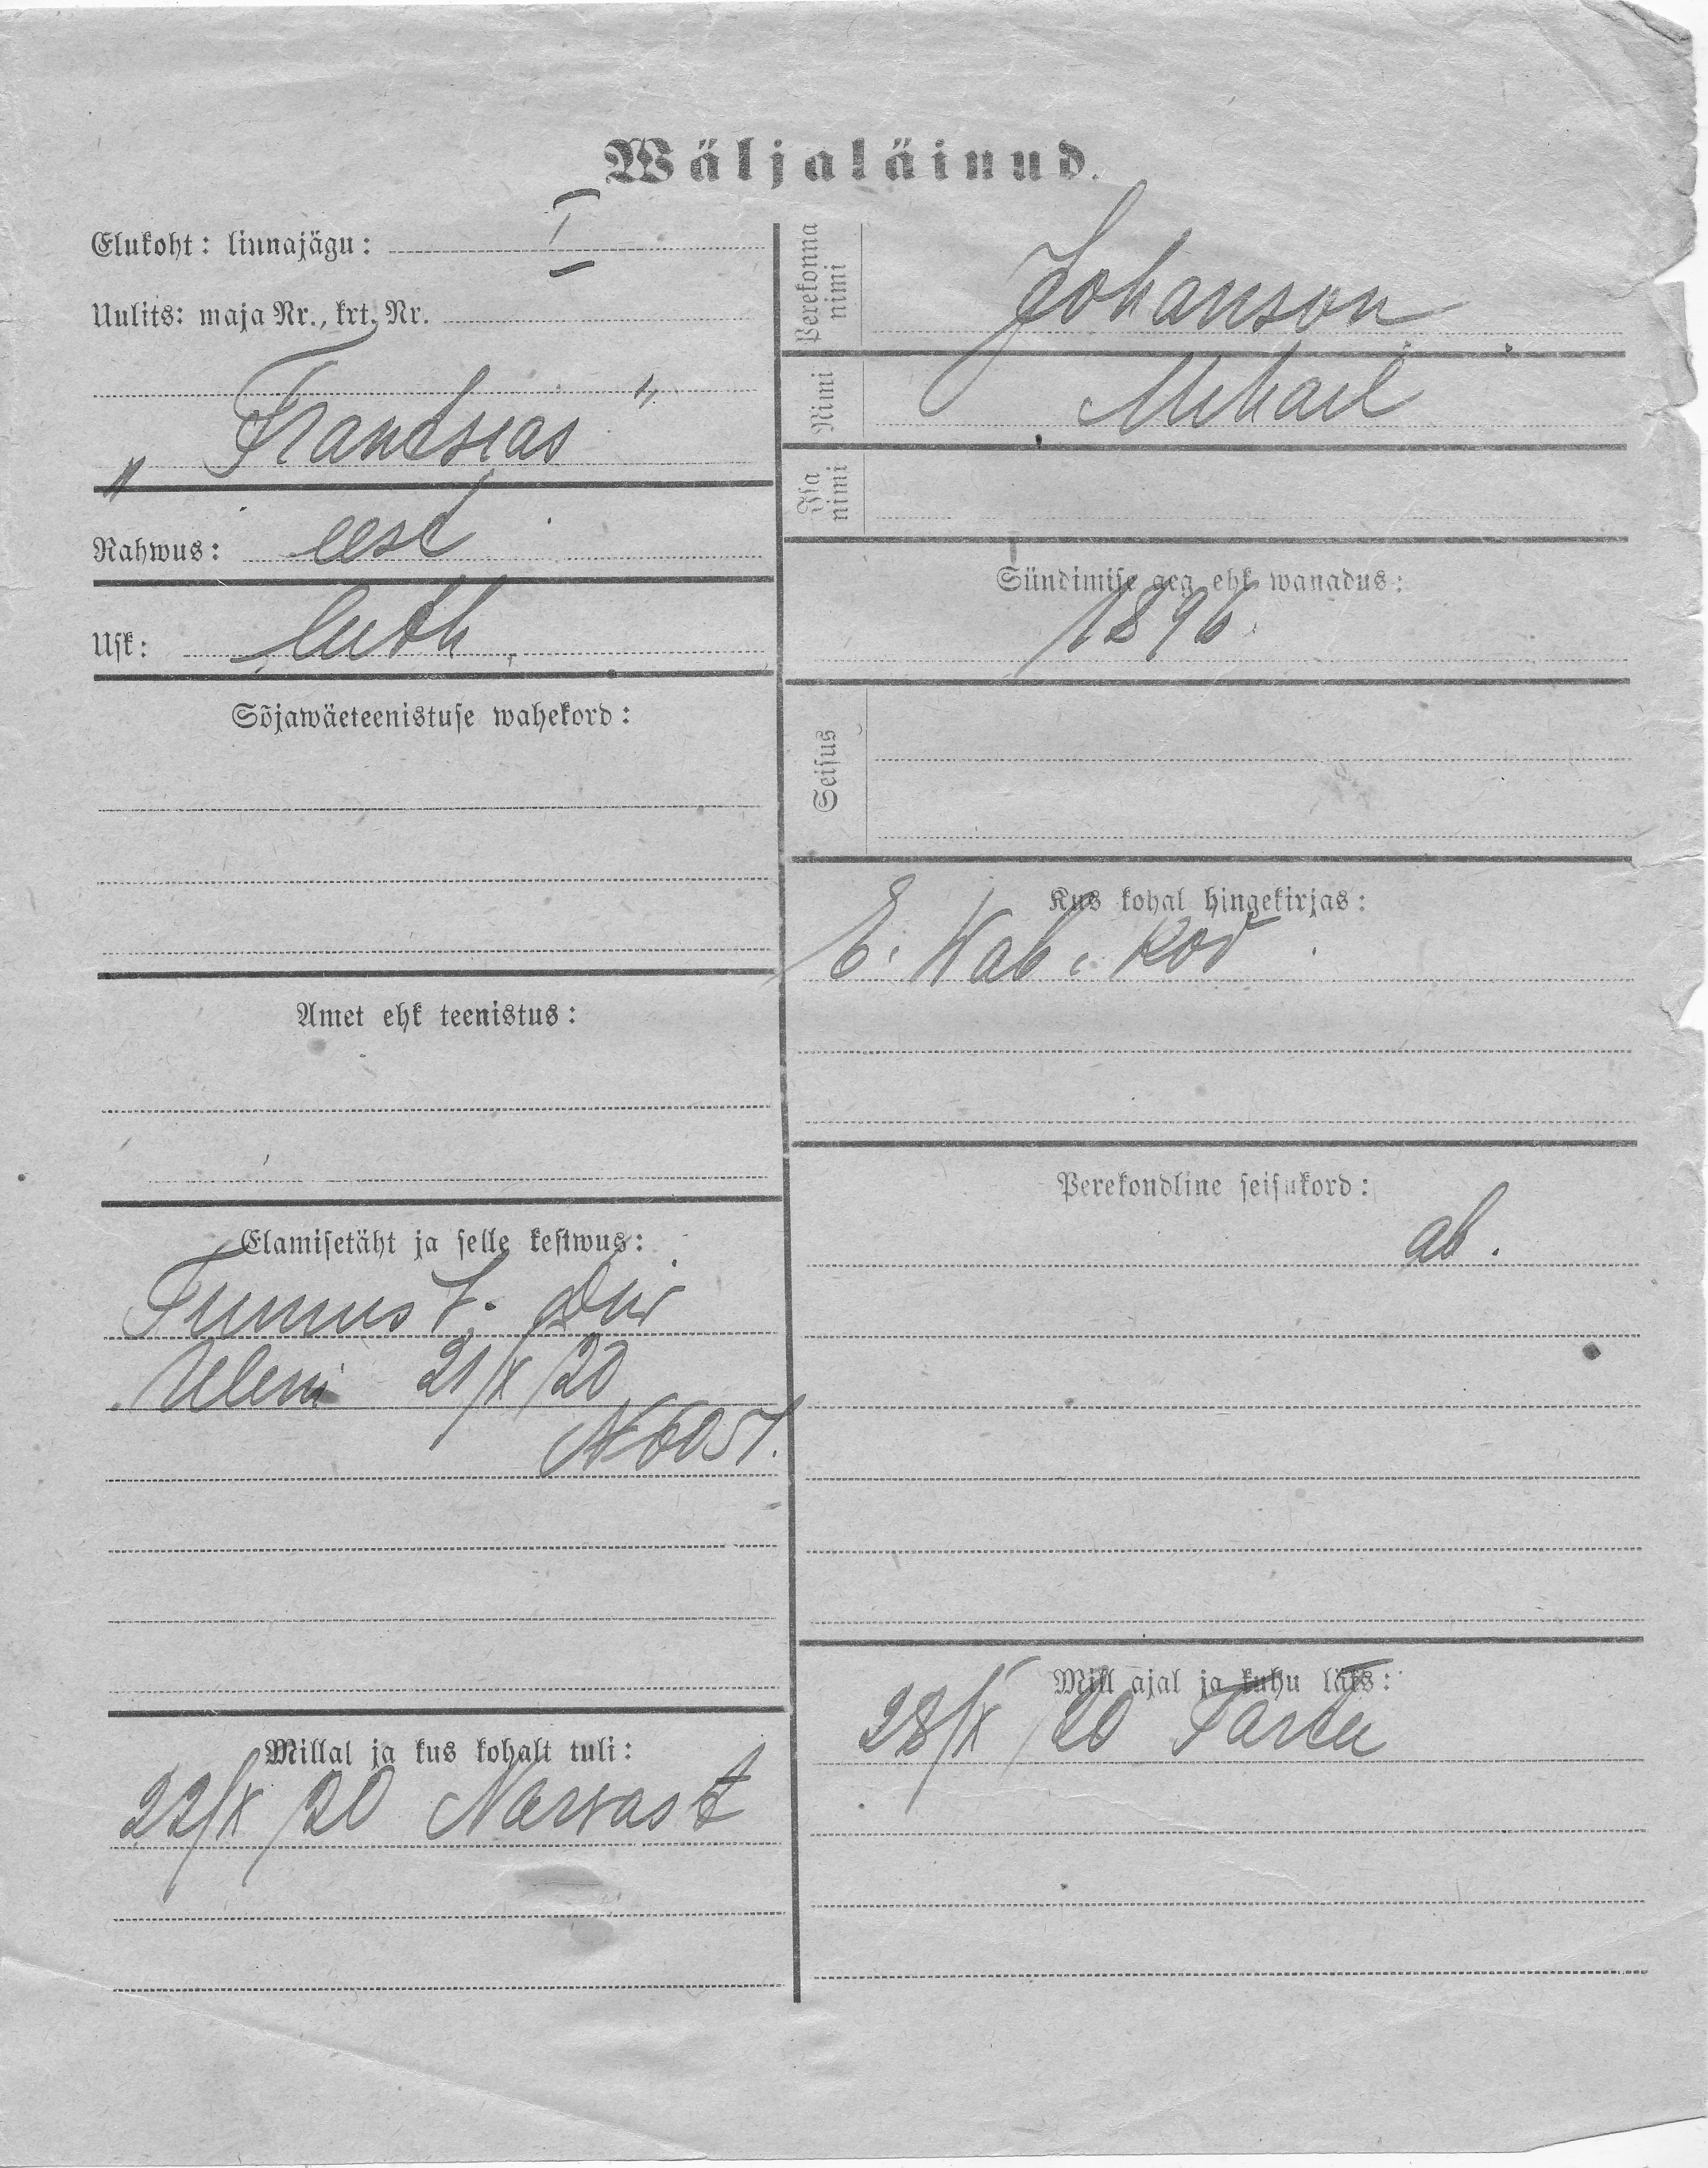 Wäljaläinud.
Elukoht: linnajägu: I
Uulits: maja Nr., krt. Nr.
"
„ Frandsias
Rahwus: eest
Usk: luth.
Sõjawäeteenistuse wahekord:
Amet ehk teenistus:
Elamisetäht ja selle kestwus:
Tunnust.
21/X 20
№ 6051.
Millal ja kus kohalt tuli:
22/X 20 Narvast
Perekonna nimi
Johanson
Nimi
Mihail
Isa nimi
Sündimise aeg ehk wanadus:
1896.
Seisus
Kus kohal hingekirjas:
E. Wab. Kod
Perekondline seisukord:
ab.
Mill ajal ja kuhu läks:
28/X 20 Tartu